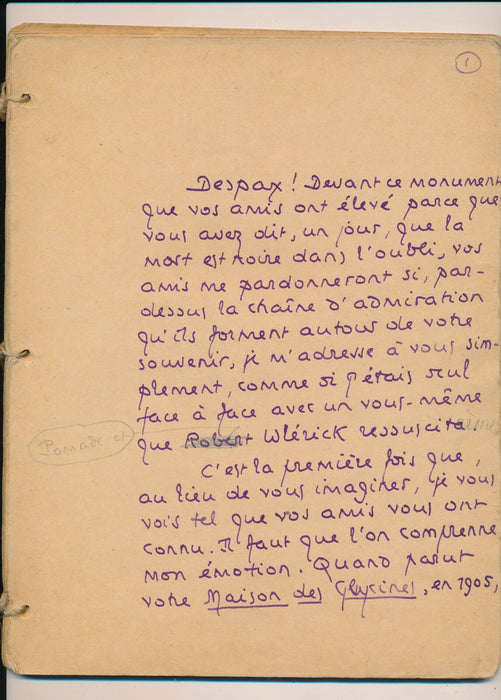 1
Despax ! Devant ce monument
que vos amis ont élevé parce que
vous avez dit, un jour, que la
mort est noire dans l'oubli, vos
amis me pardonneront si, par-
dessus la chaîne d'admiration
qu'ils forment autour de votre
souvenir, je m'adresse à vous sim-
plement, comme si j'étais seul
face à face avec un vous-même
Pomade et
que Robert Wlérick ressuscita
C'est la première fois que,
au lieu de vous imaginer, je vous
vois tel que vos amis vous ont
connu. Il faut que l'on comprenne
mon émotion. Quand parut
votre Maison des Glycines, en 1905,